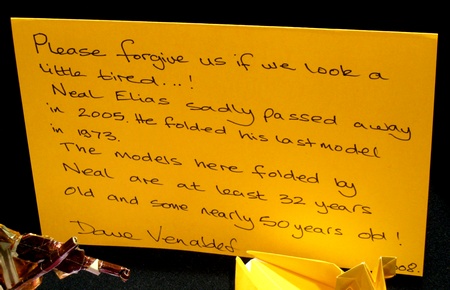 Please forgive us if we look a
little tired...!
Neal Elias sadly passed away
in 2005. He folded his last model
in 1973.
The models here folded by
Neal are at least 32 years
old and some nearly 50 years old!
Dave Venables.